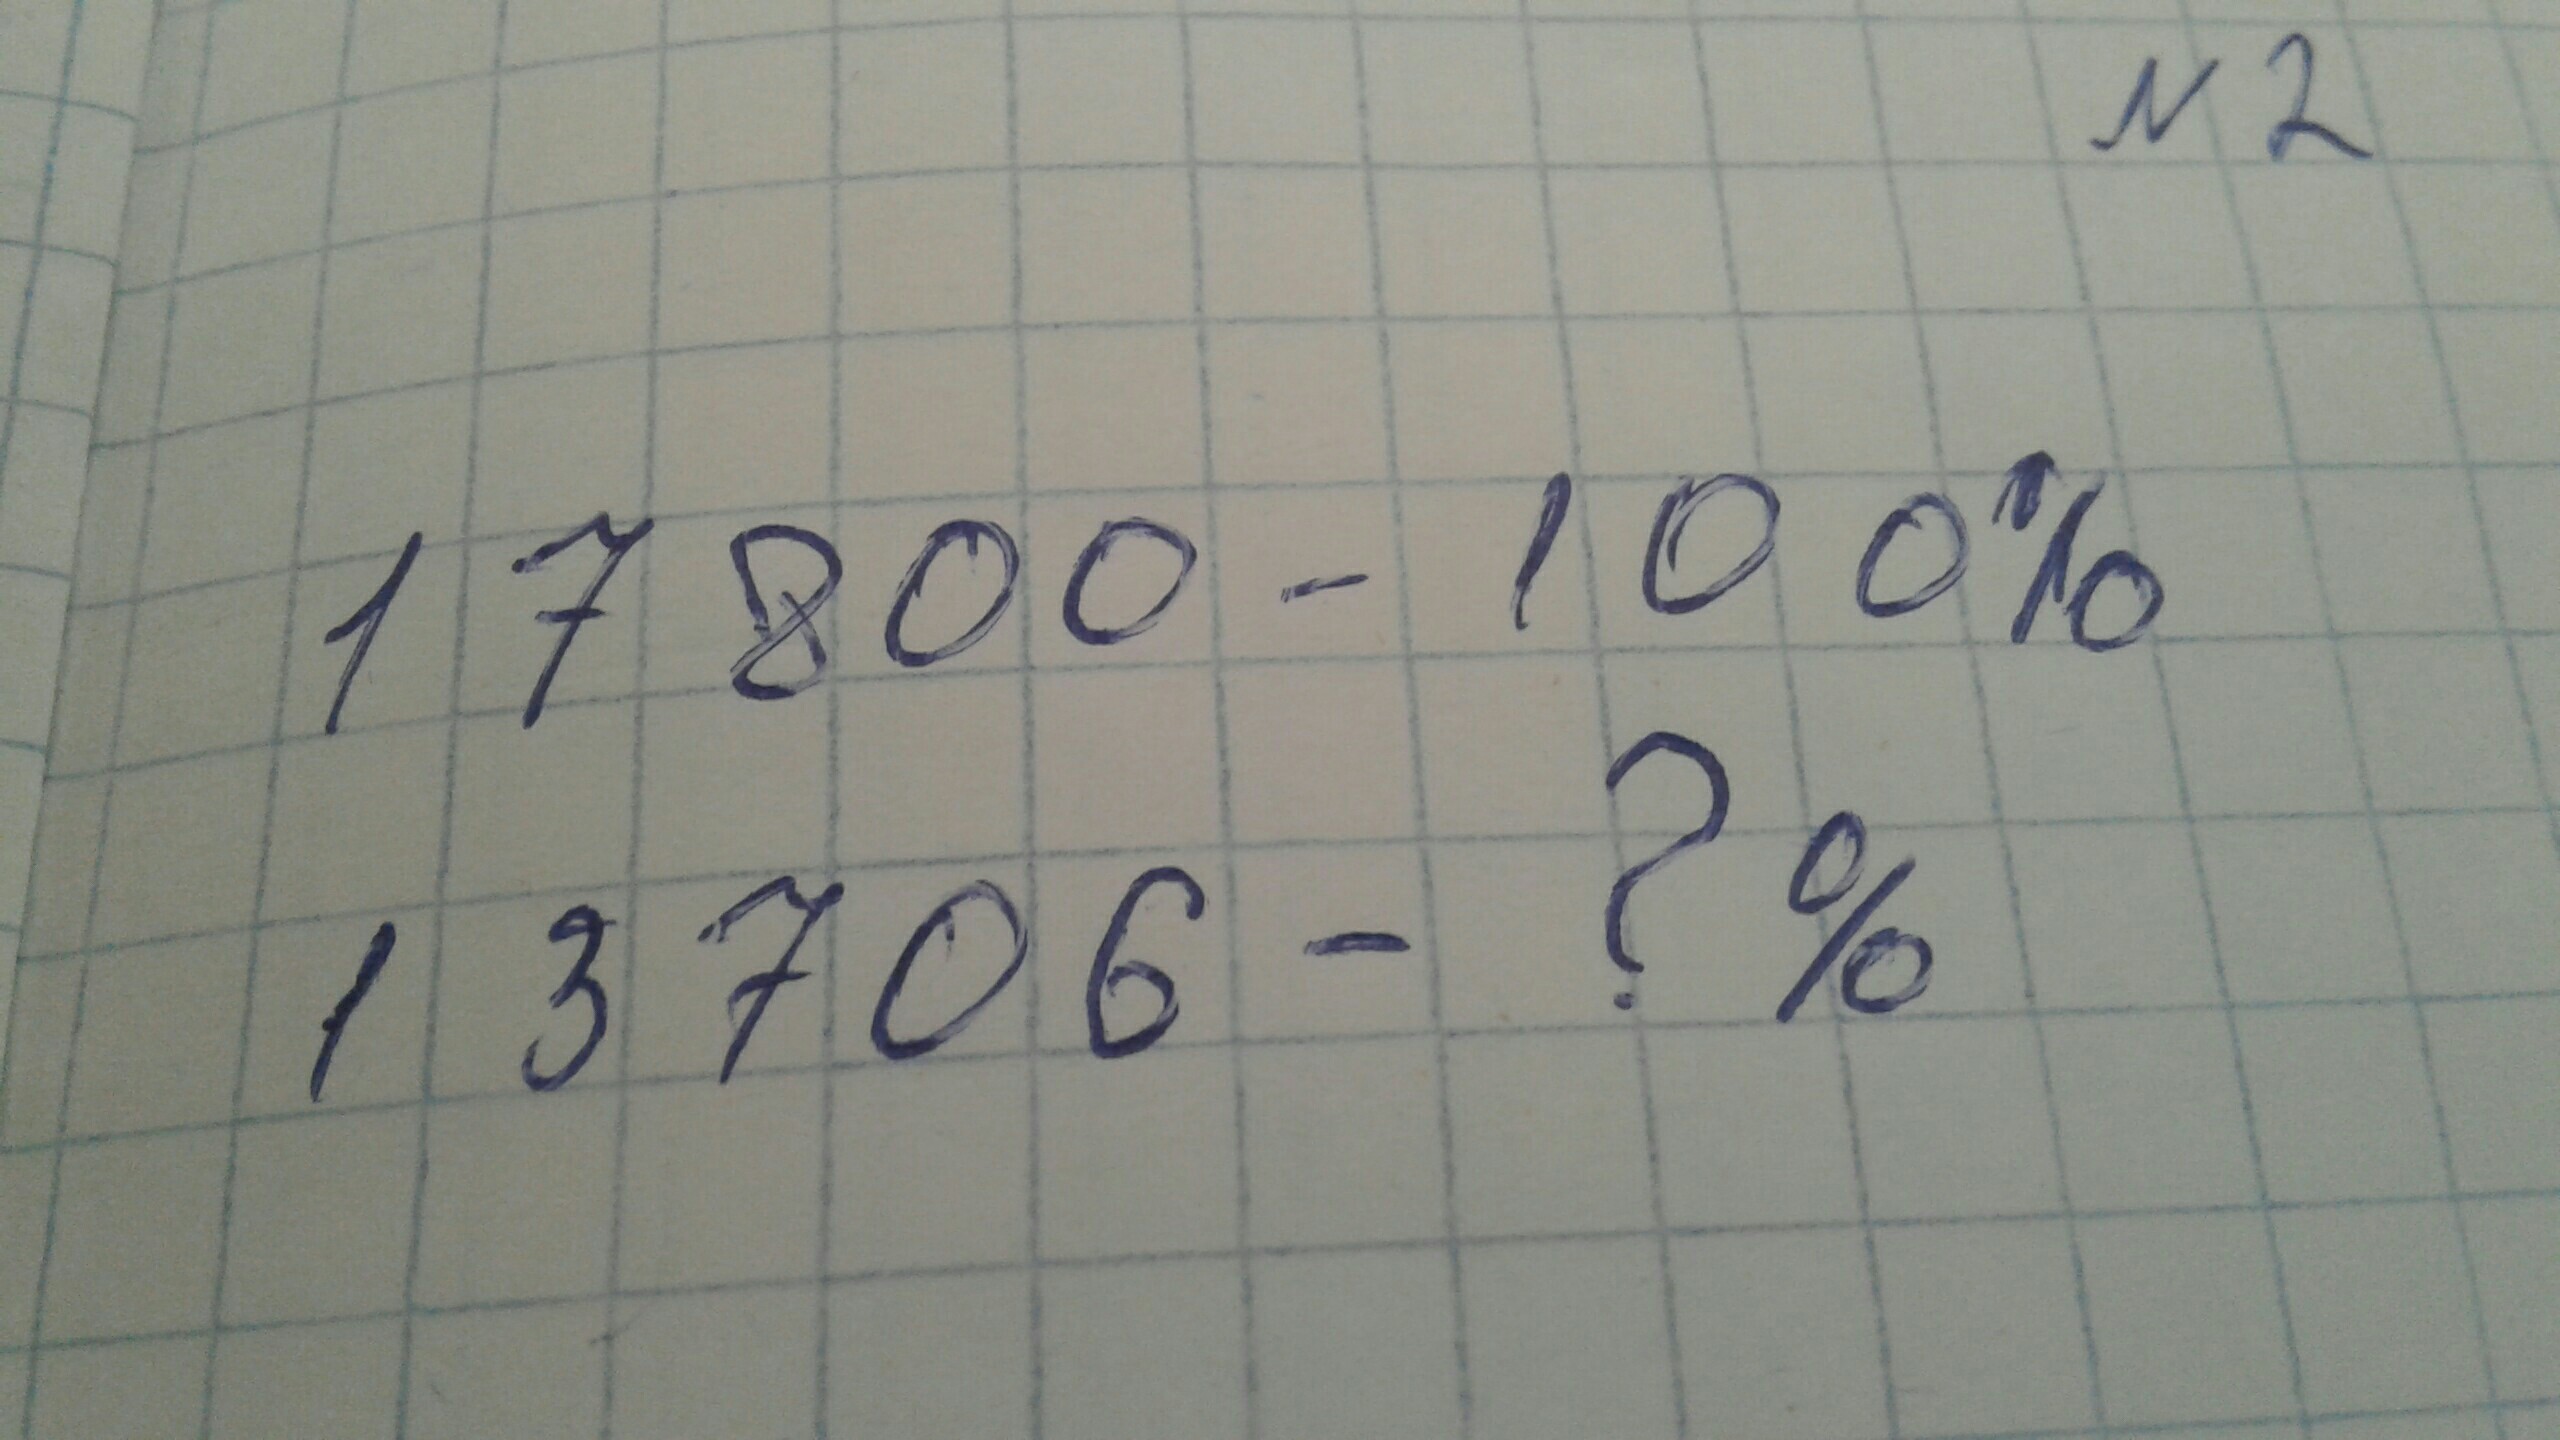 N 2
17800 - 100%
13706 - ? %